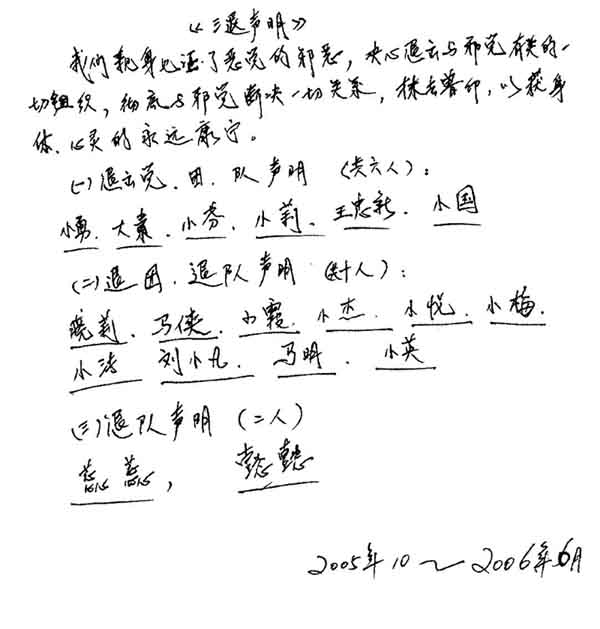 《三退声明》
我们亲身见证了恶党的邪恶，决心退出与邪党有关的一
切组织，彻底与邪党断决一切关系，抹去兽印，以获身
体、心灵的永远康宁。
(一)退出党、团、队声明（共六人）：
小勇、大素、小芬、小莉、王忠新、小国
(二)退团、退队声明（共十人）：
晓莉、马侠、小霞、小杰、小悦、小梅、
小涛 刘小凡、马明、小英
(三)退队声明（二人）
蕊蕊，懿懿
2005年10～2006年6月